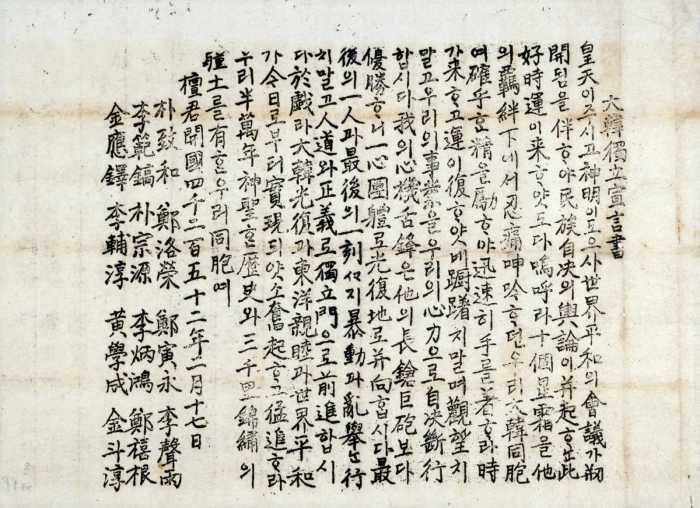 大韓獨立宣言書
皇天이주시고神明이도으사世界平和의會議가刱
開됨을伴ᄒᆞ야民族自决의輿論이幷起ᄒᆞ는此
好時運이來ᄒᆞ얏도다嗚呼라十個星霜을他
의覊絆下에서忍痛呻吟ᄒᆞ던우리大韓同胞
여確乎ᄒᆞᆫ精을勵ᄒᆞ야迅速히手를着ᄒᆞ라時
가來ᄒᆞ고運이復ᄒᆞ얏네躕躇치말며觀望치
말고우리의事業을우리의心力으로自决斷行
합시다我의心機舌鋒은他의長鎗巨砲보다
優勝ᄒᆞ니一心團體로光復地로幷向합시다最
後의一人과最後의一刻ᄭᆞ지暴動과亂擧는行
치말고人道와正義로獨立門으로前進합시
다於戲라大韓光復과東洋親睦과世界平和
가今日로부터實現되얏소奮起ᄒᆞ고猛進ᄒᆞ라
우리半萬年神聖ᄒᆞᆫ歷史와三千里錦繡의
疆土를有ᄒᆞᆫ우리同胞여
檀君開國四千二百五十二年二月十七日
朴致和 鄭洛榮 鄭寅永 李聲雨
李範鎬 朴宗源 李炳鴻 鄭禧根
金應鐸 李輔淳 黃學成 金斗淳